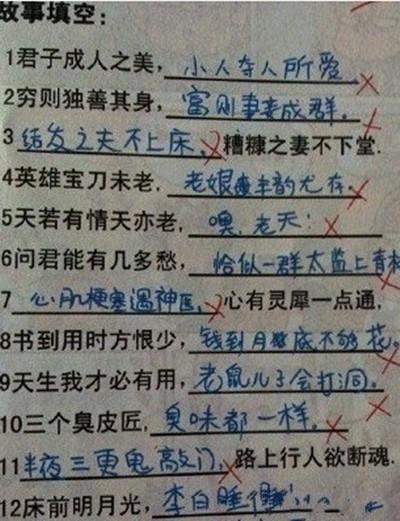 故事填空：
1君子成人之美，小人夺人所爱
2穷则独善其身，富则妻妾成群。
3结发之夫不上床，糟糠之妻不下堂.
4英雄宝刀未老，老娘丰韵尤存，
5天若有情天亦老，噢，老天！
6问君能有几多愁，恰似一群太监上青楼
7心肌梗塞遇神医，心有灵犀一点通，
8书到用时方恨少，钱到月底不够花。
9天生我才必有用，老鼠儿子会打洞。
10三个臭皮匠，臭味都一样。
11半夜三更鬼敲门，路上行人欲断魂.
12床前明月光，李白睡